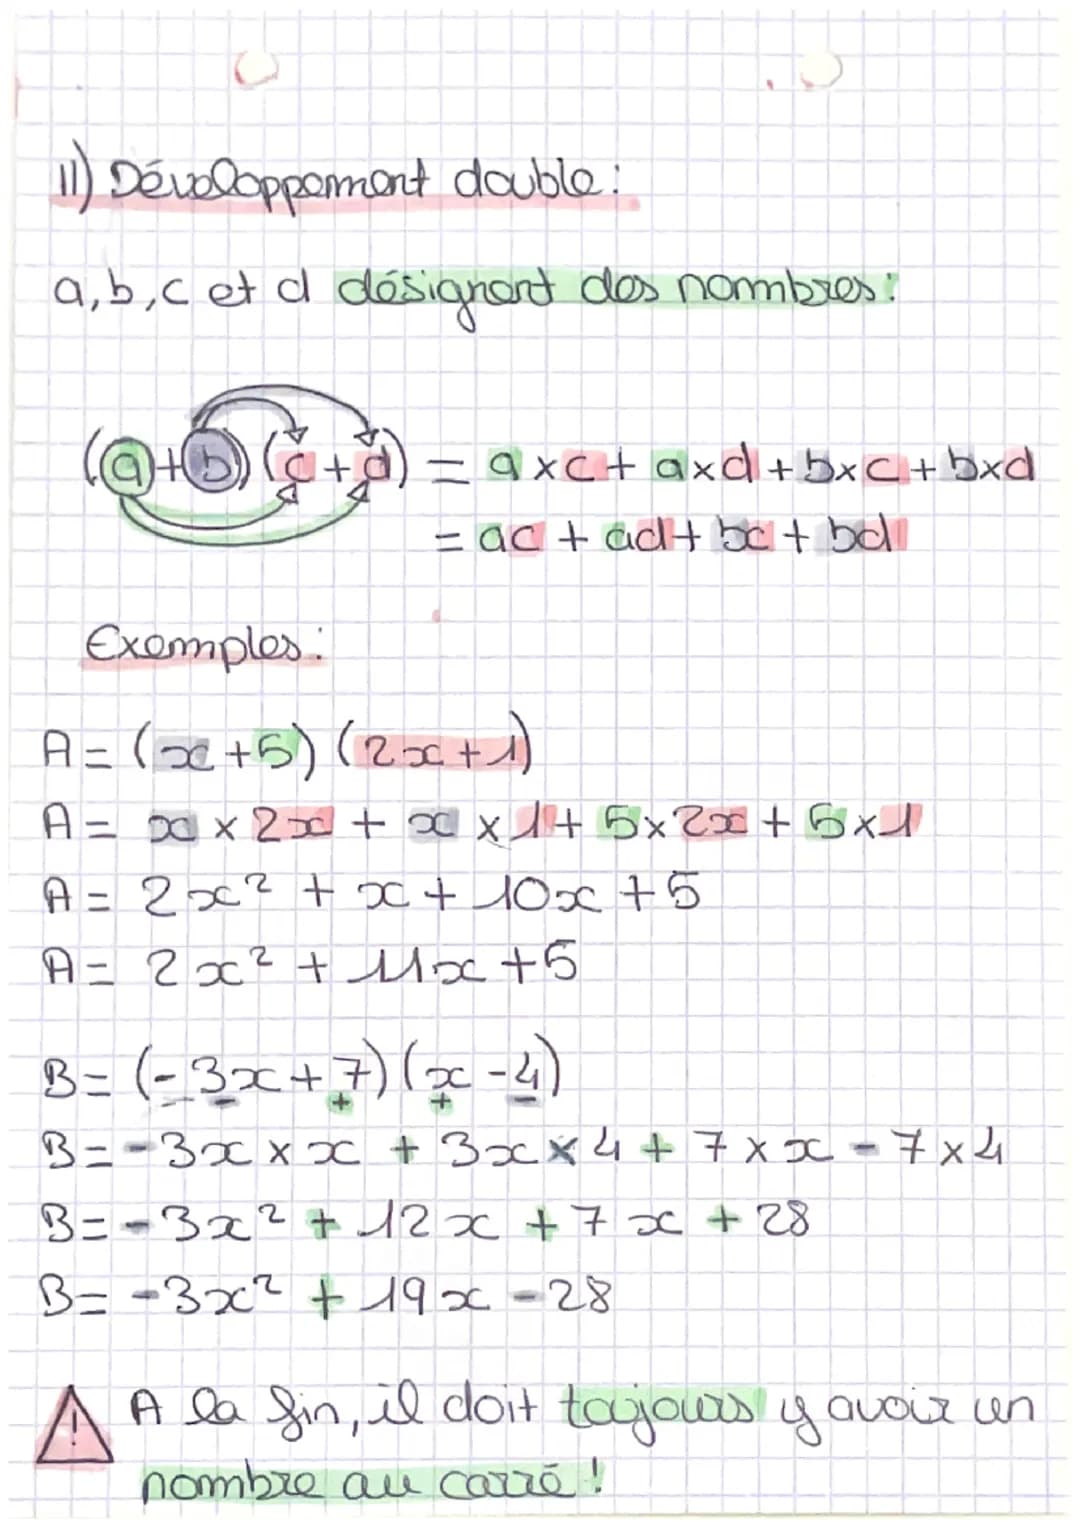 II) Développement double :
a, b, c et d désignent des nombres :
(a+b)(c+d) = a×c + a×d + b×c + b×d
= ac + ad + bc + bd
Exemples :
A = (x+5)(2x+1)
A = x × 2x + x × 1 + 5×2x + 5×1
A = 2x² + x + 10x + 5
A = 2x² + 11x + 5
B = (-3x+7)(x-4)
- + + -
B = -3x × x + 3x × 4 + 7 × x - 7 × 4
B = -3x² + 12x + 7x + 28
B = -3x² + 19x - 28
! A la fin, il doit toujours y avoir un
nombre au carré !